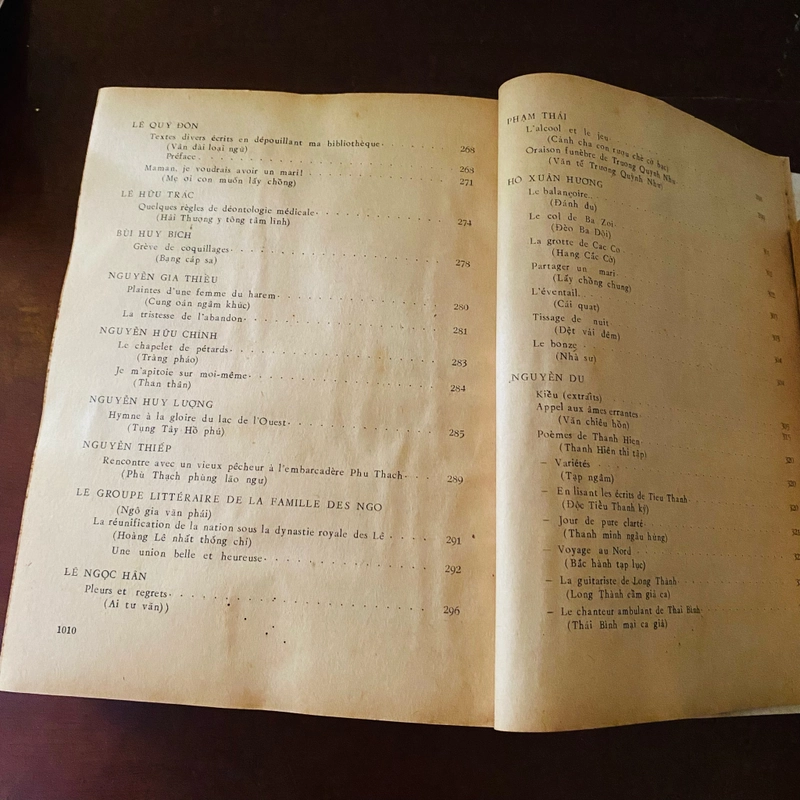 LÊ QUÝ ĐÔN
Textes divers écrits en dépouillant ma bibliothèque 268
(Vân đài loại ngữ)
Préface 268
Maman, je voudrais avoir un mari! 271
(Mẹ ơi con muốn lấy chồng)
LÊ HỮU TRÁC
Quelques règles de déontologie médicale 274
(Hải Thượng y tông tâm lĩnh)
BÙI HUY BÍCH
Grève de coquillages 278
(Bang cáp sa)
NGUYỄN GIA THIỀU
Plaintes d'une femme du harem 280
(Cung oán ngâm khúc)
La tristesse de l'abandon 281
NGUYỄN HỮU CHỈNH
Le chapelet de pétards 283
(Tràng pháo)
Je m'apitoie sur moi-même 284
(Than thân)
NGUYỄN HUY LƯỢNG
Hymne à la gloire du lac de l'Ouest 285
(Tụng Tây Hồ phú)
NGUYỄN THIẾP
Rencontre avec un vieux pêcheur à l'embarcadère Phu Thạch 289
(Phù Thạch phùng lão ngư)
LE GROUPE LITTÉRAIRE DE LA FAMILLE DES NGO
(Ngô gia văn phái)
La réunification de la nation sous la dynastie royale des Lê 291
(Hoàng Lê nhất thống chí)
Une union belle et heureuse 292
LÊ NGỌC HÂN
Pleurs et regrets 296
(Ai tư vãn))
1010
PHẠM THÁI
L'alcool et le jeu
(Cảnh cha con rượu chè cờ bạc)
Oraison funèbre de Trương Quỳnh Nhu
(Văn tế Trương Quỳnh Như)
HỒ XUÂN HƯƠNG
Le balançoire
(Đánh đu)
Le col de Ba Zoi
(Đèo Ba Dội)
La grotte de Cac Co
(Hang Cắc Cớ)
Partager un mari
(Lấy chồng chung)
L'éventail
(Cái quạt)
Tissage de nuit
(Dệt vải đêm)
Le bonze
(Nhà sư)
NGUYỄN DU
Kiều (extraits)
Appel aux âmes errantes
(Văn chiêu hồn)
Poèmes de Thanh Hien
(Thanh Hiên thi tập)
— Variétés
(Tạp ngâm)
— En lisant les écrits de Tieu Thanh
(Độc Tiểu Thanh ký)
— Jour de pure clarté
(Thanh minh ngẫu hứng)
— Voyage au Nord
(Bắc hành tạp lục)
— La guitariste de Long Thành
(Long Thành cầm giả ca)
— Le chanteur ambulant de Thai Binh
(Thái Bình mại ca giả)